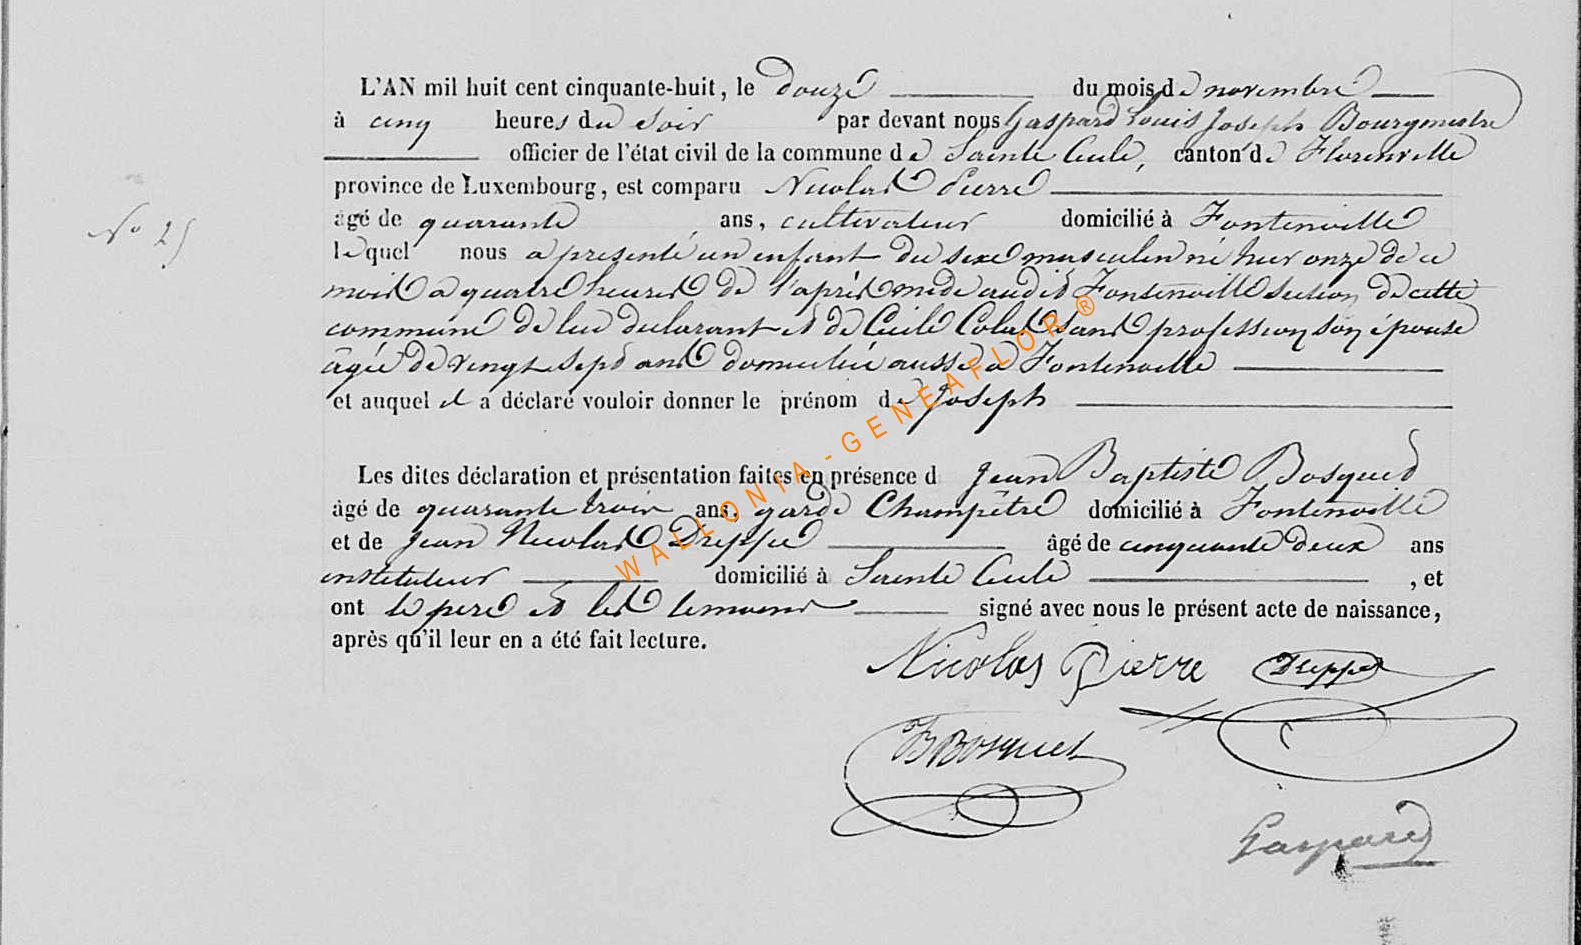 L'AN mil huit cent cinquante-huit, le douze du mois de novembre
à cinq heures du soir par devant nous Gaspard Louis Joseph Bourgmestre
officier de l'état civil de la commune de Sainte Cecile, canton de Florenville
province de Luxembourg, est comparu Nicolas Pierre
âgé de quarante ans, cultivateur domicilié à Fontenoille
lequel nous a présenté un enfant du sexe masculin né hier onze de ce
mois a quatre heures de l'après midi audit Fontenoille section de cette
commune de lui declarant et de Cecile Colas sans profession son épouse
âgée de vingt sept ans domiciliée aussi a Fontenoille
et auquel il a déclaré vouloir donner le prénom de Joseph
Les dites déclaration et présentation faites en présence d Jean Baptiste Bosquet
âgé de quarante trois ans, garde Champêtre domicilié à Fontenoille
et de Jean Nicolas Dreppe âgé de cinquante deux ans
instituteur domicilié à Sainte Cecile , et
ont le pere et les temoins signé avec nous le présent acte de naissance,
après qu'il leur en a été fait lecture.
N° 25
Nicolas Pierre Dreppe
JBBosquet
Gaspard
WALLONIA-GENEAFLOR®